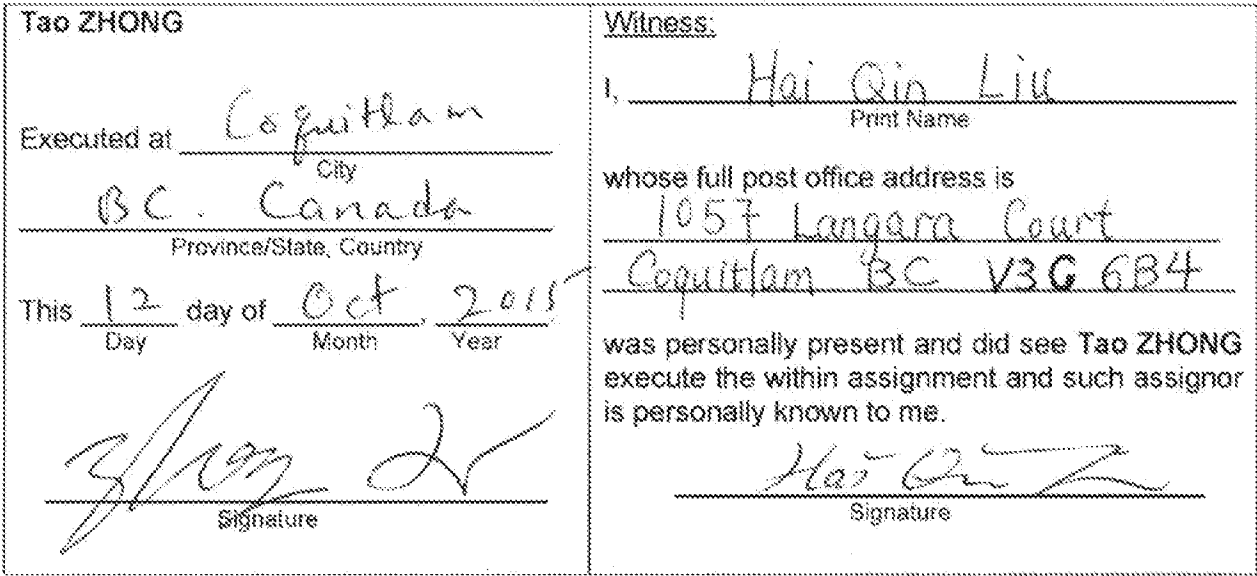 Tao ZHONG
Executed at Coquitlam
City
BC. Canada
Province/State, Country
This 12 day of Oct, 2015
Day Month Year
Signature
Witness:
I, Hai Qin Liu
Print Name
whose full post office address is
1057 Langara Court
Coquitlam BC V3C 6B4
was personally present and did see Tao ZHONG
execute the within assignment and such assignor
is personally known to me.
Hai Qin
Signature